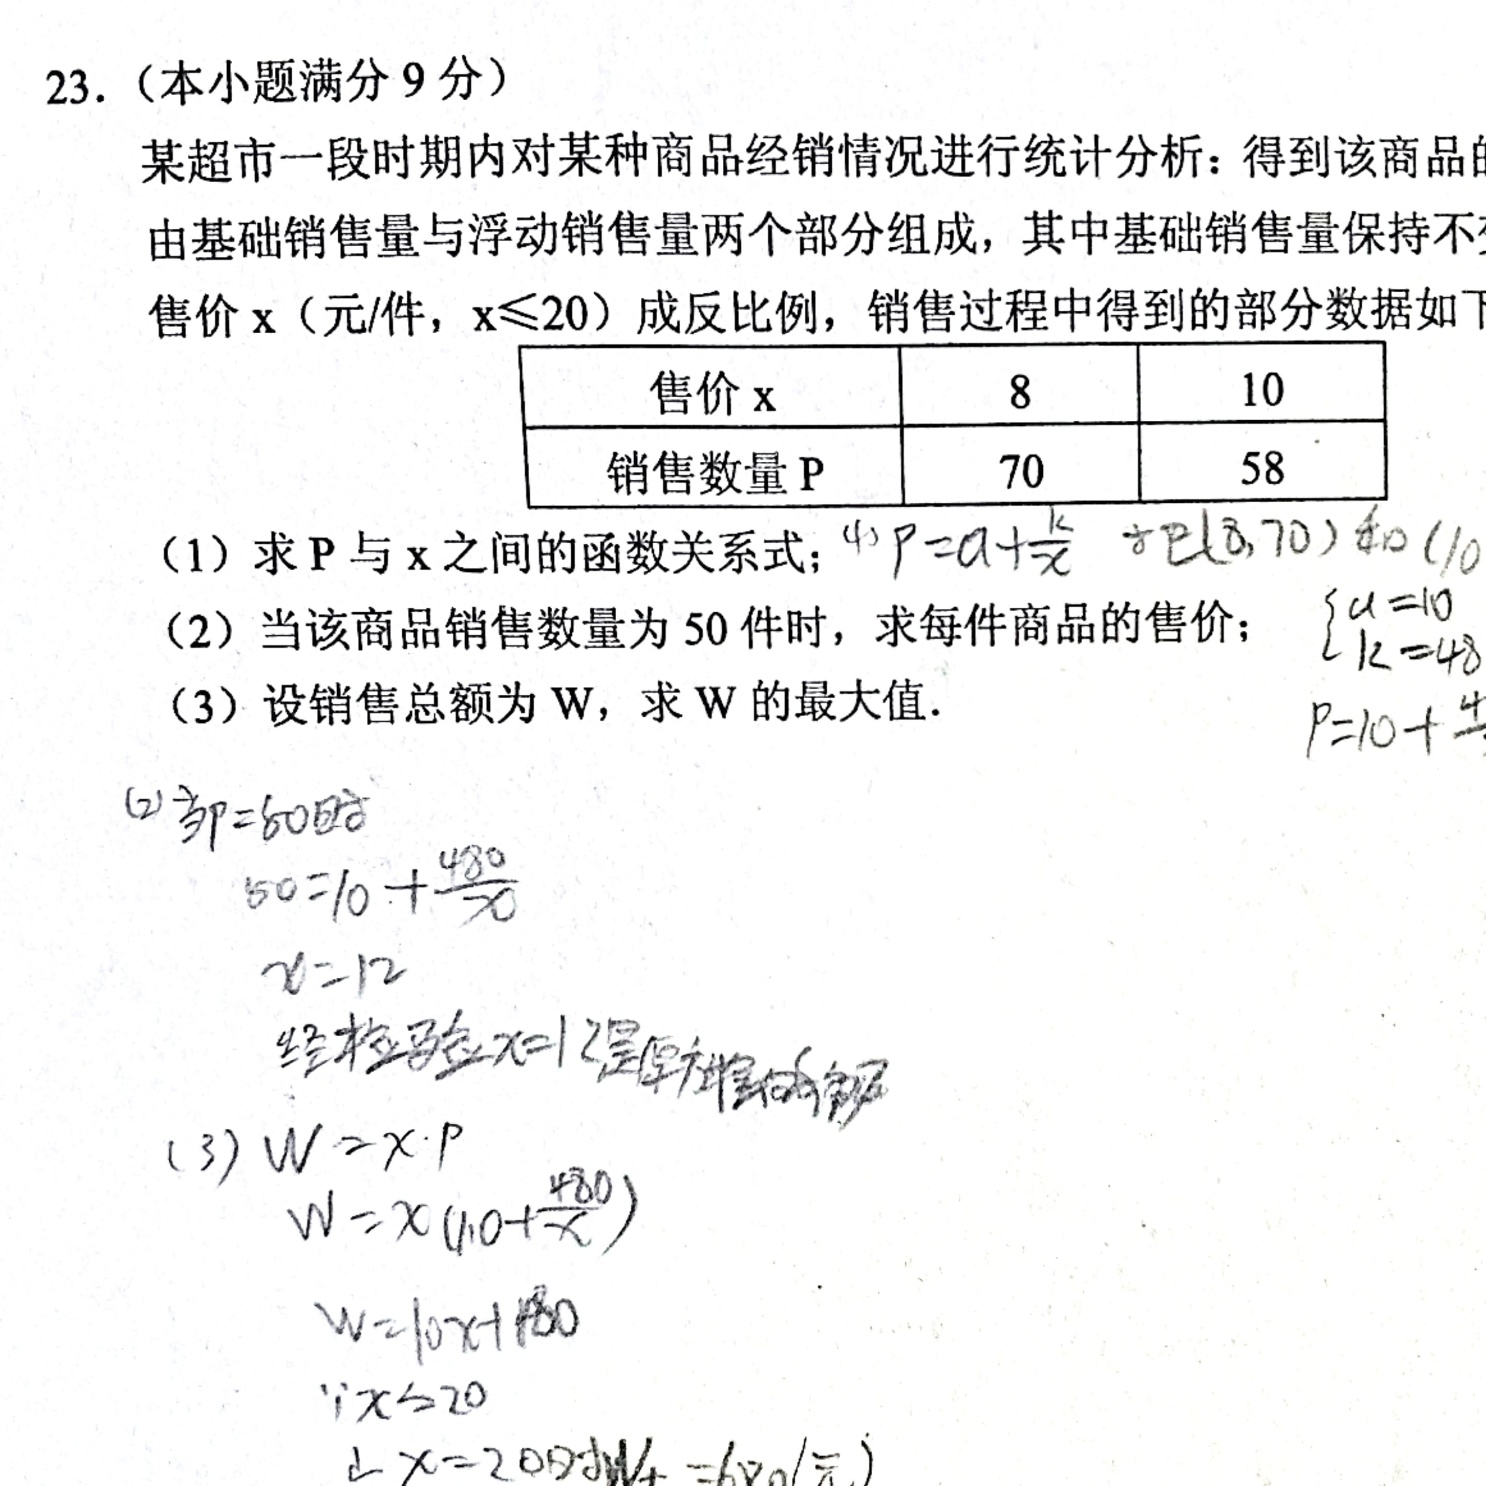 23.（本小题满分 9 分）
某超市一段时期内对某种商品经销情况进行统计分析：得到该商品的
由基础销售量与浮动销售量两个部分组成，其中基础销售量保持不变
售价 x（元/件，x≤20）成反比例，销售过程中得到的部分数据如下
售价 x 8 10
销售数量 P 70 58
（1）求 P 与 x 之间的函数关系式； (1) P=a+k/x 把(8,70)和(10
（2）当该商品销售数量为 50 件时，求每件商品的售价； {a=10
k=48
（3）设销售总额为 W，求 W 的最大值.
P=10+4
(2) 当P=50时
50=10+480/x
x=12
经检验x=12是原方程的解
(3) W=x·P
W=x(10+480/x)
W=10x+480
∵x≤20
∴x=20时W大=680(元)